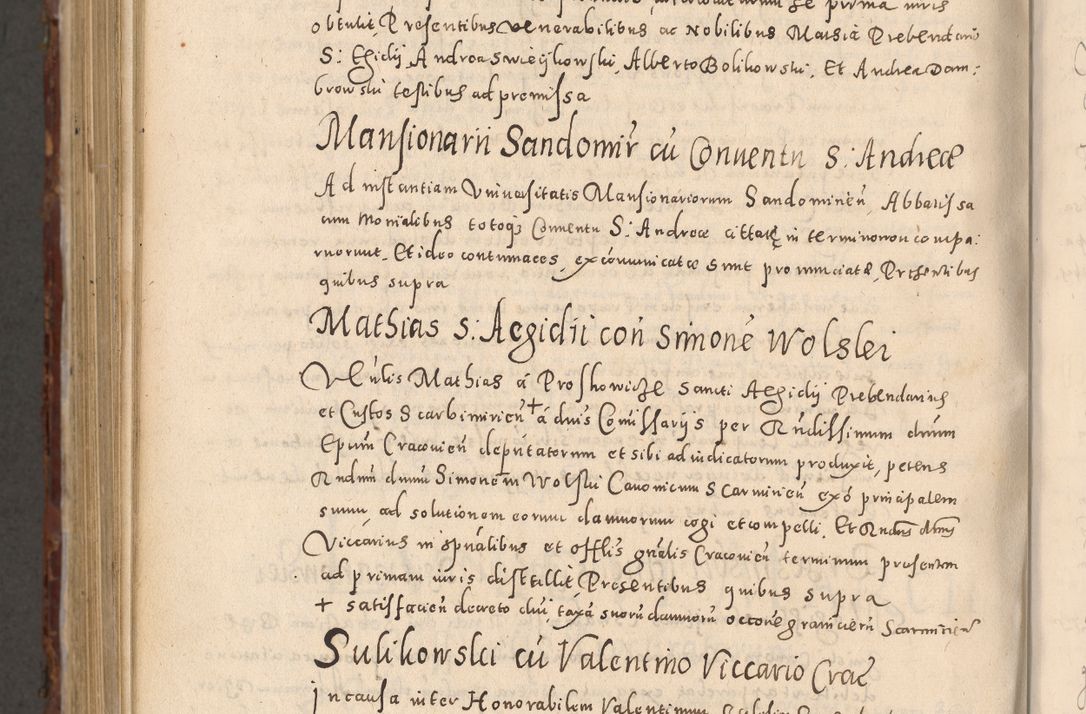 obtulit, Presentibus venerabilibus ac Nobilibus Mathia Prebendario
S: Egidij Andrea Swieijkowski, Alberto Bolikowski, Et Andrea Dam:
browski testibus ad premissa
Mansionarii Sandomir̃ cũ Conuentu S: Andreæ
Ad instantiam Vniuersitatis Mansionariorum Sandomirień, Abbatissa
cum Monialibus totoq́ Conuentu S: Andreæ cittatę in termino non compa:
ruerunt. Et ideo contumaces, excõmunicatæ sunt pronunciatæ, Presentibus
quibus supra
Mathias S: Aegidii con̄ Simonē Wolslei
Vēn̄lis Mathias á Proskowicze Sancti Aegidij Prebendarius
et Custos Scarbimirień + á dn̄is Comissarijs per Rn̄dissimum dn̄um
Ep̄um Cracouień deputatorum et sibi adiudicatorum produxit, petens
Rn̄dum dn̄um Simonem Wolski Canonicum Scarmirień exō principalem
suum, ad solutionem eorum damnorum cogi et compelli. Et Rn̄dus dn̄us
Viccarius in sp̄ualibus et offl̄is gn̄alis Cracouień terminum presentem
ad primam iuris distellit Presentibus quibus supra
+ satisfacień decreto dn̄i taxã suorũ damnorũ occõne grancierũ Scarmirień
Sulikowslei cũ Valentino Viccario Crac̄
In causa inter Honorabilem Valentinum